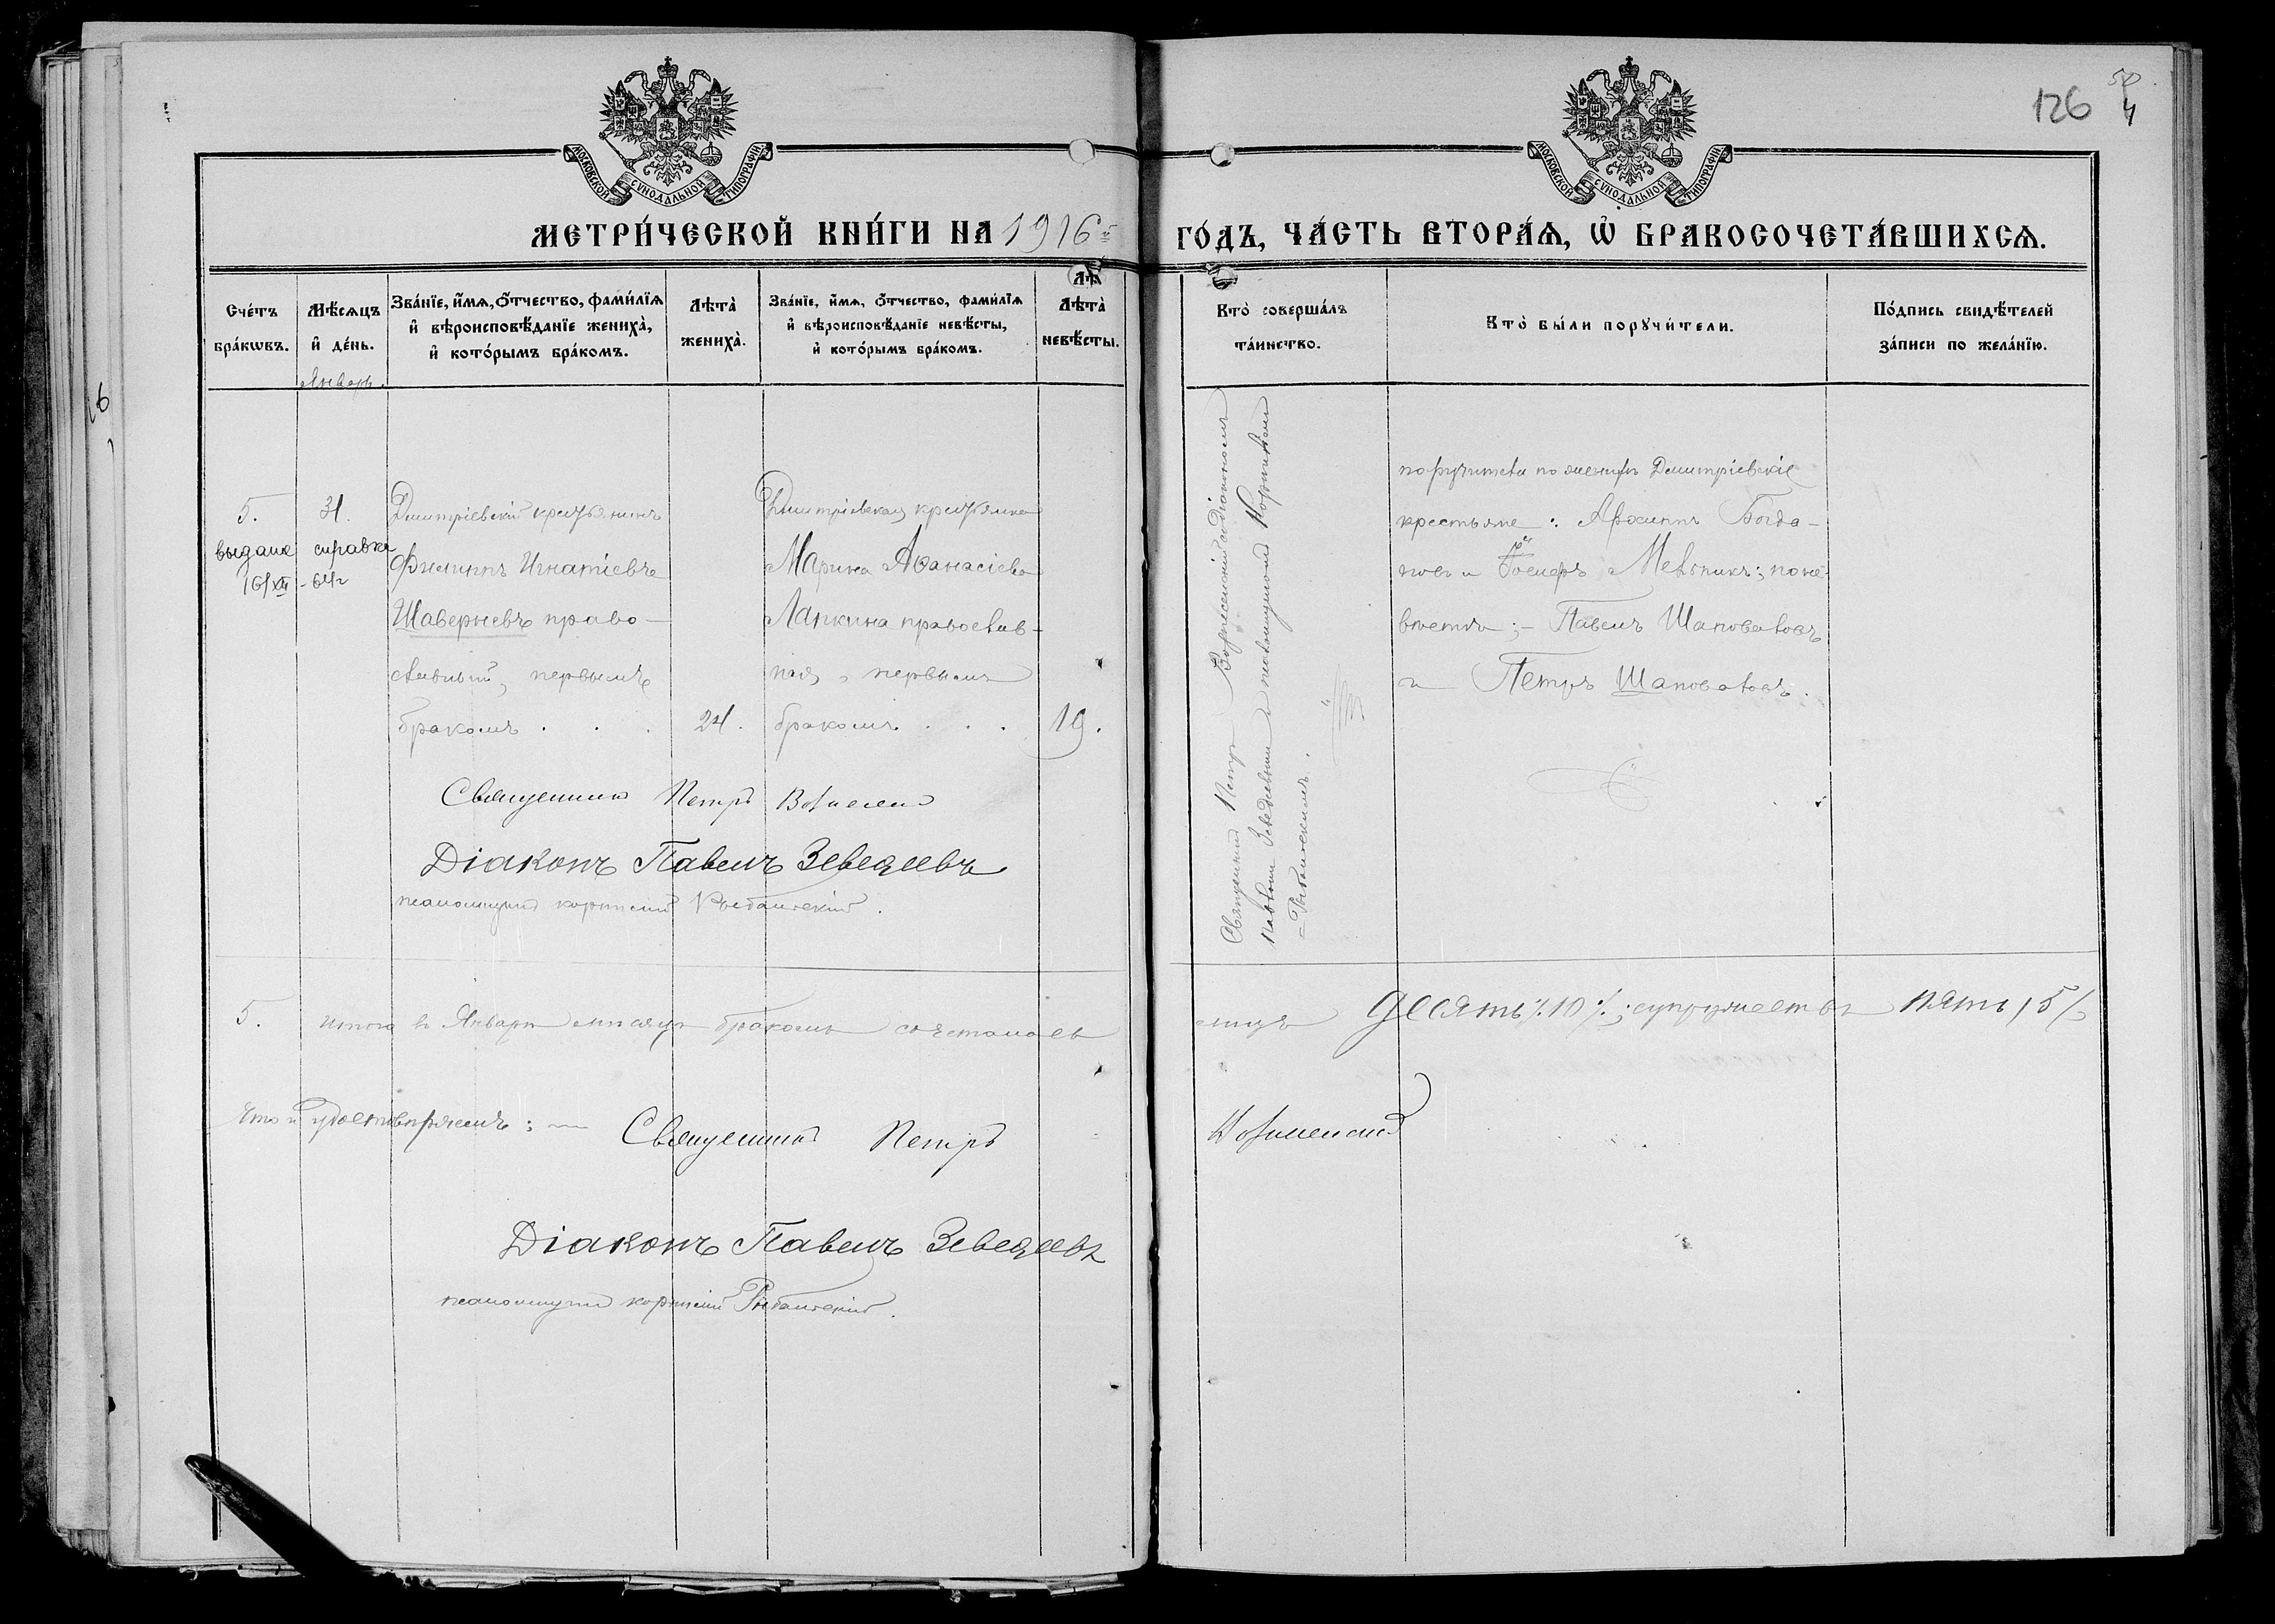 126
4
МОСКОВСКОЙ СѴНОДАЛЬНОЙ ТИПОГРАФІИ
МОСКОВСКОЙ СѴНОДАЛЬНОЙ ТИПОГРАФІИ
МЕТРИ́ЧЕСКОЙ КНИ́ГИ НА 1916й
ГО́ДЪ, ЧА́СТЬ ВТОРА́Ѧ, Ѽ БРАКОСОЧЕТА́ВШИХСѦ.
Сче́тъ бра́кѡвъ.
Мѣ́сѧцъ и҆ де́нь.
Зва́нїе, и҆́мѧ, ѻ҆́тчество, фами́лїѧ
и҆ вѣроисповѣ́данїе жениха̀,
и҆ кото́рымъ бра́комъ.
Лѣта̀ жениха̀.
Зва́нїе, и҆́мѧ, ѻ҆́тчество, фами́лїѧ
и҆ вѣроисповѣ́данїе невѣ́сты,
и҆ кото́рымъ бра́комъ.
Лѣта̀ невѣ́сты.
Кто̀ соверша́лъ та́инство.
Кто̀ бы́ли порꙋчи́тели.
По́дпись свидѣ́телей за́писи по жела́нїю.
Январь.
5.
31.
выдана справка
16/XII - 64г
Дмитріевскій крестьянинъ
Филиппъ Игнатіевъ
Шаверневъ право-
славный, первымъ
бракомъ . . .
24.
Дмитріевская крестьянка
Марина Аѳанасіева
Лапкина православ-
ная, первымъ
бракомъ . . .
19.
Священникъ Петръ Вознесенскій съ діакономъ
Павломъ Зеведеевымъ и псаломщикомъ Корниліемъ
Рыбалтскимъ.
поручители по женихѣ Дмитріевскіе
крестьяне: Архиппъ Богда-
новъ и Мельникъ; по не-
вѣстѣ; - Павелъ Шаповаловъ
и Петръ Шаповаловъ.
Священникъ Петръ Вознесенскій
Діаконъ Павелъ Зеведеевъ
псаломщикъ Корнилій
5. Итого въ Январѣ мѣсяцѣ бракомъ сочеталось
лицъ десять /10/; супружествъ пять /5/
Что и удостовѣряемъ: — Священникъ Петръ
Вознесенскій
Діаконъ Павелъ Зеведеевъ
псаломщикъ Корнилій